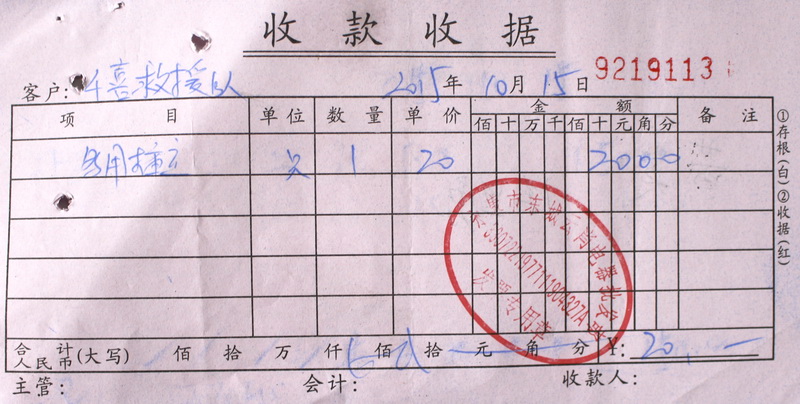 收款收据
客户: 千喜救援队 2015年10月15日 9219113
项目 单位 数量 单价 金额 备注
佰 十 万 千 佰 十 元 角 分
多用插座 只 1 20 2000
合计人民币(大写) 佰 拾 万 仟 佰 贰拾 元 角 分 ¥: 20.—
主管: 会计: 收款人:
①存根(白)②收据(红)
发票专用章